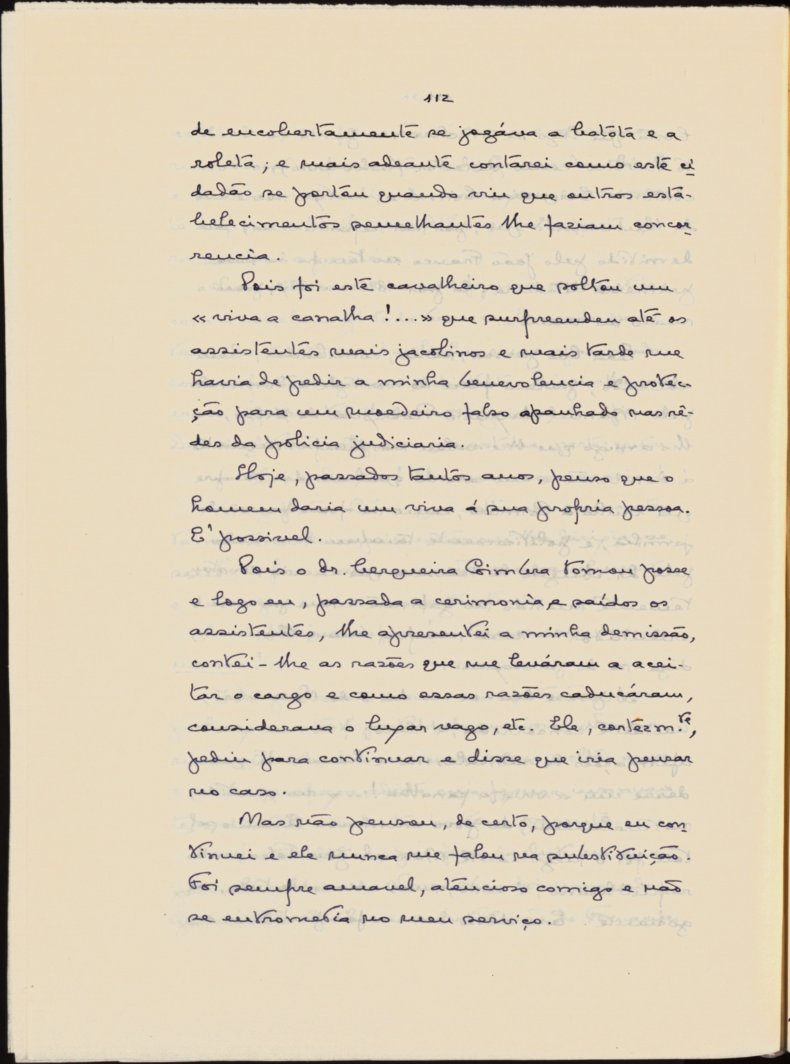 112
de encobertamente se jogáva a batota e a
roleta; e mais adeante contarei como este ci
dadão se portou quando viu que outros esta-
belecimentos semelhantes lhe faziam concor
rencia.
Pois foi este cavalheiro que soltou um
« viva a canalha !... » que surpreendeu até os
assistentes mais jacobinos e mais tarde me
havia de pedir a minha benevolencia e protec-
ção para um moedeiro falso apanhado nas rê-
des da policia judiciaria.
Hoje, passados tantos anos, penso que o
homem daria um viva á sua propria pessoa.
E' possivel.
Pois o dr. Cerqueira Coimbra tomou posse
e logo eu, passada a cerimonia e saídos os
assistentes, lhe apresentei a minha demissão,
contei-lhe as razões que me leváram a acei-
tar o cargo e como essas razões caducáram,
considerava o lugar vago, etc. Ele, cortêzm.te,
pediu para continuar e disse que iria pensar
no caso.
Mas não pensou, de certo, porque eu con
tinuei e ele nunca me falou na substituição.
Foi sempre amavel, atencioso comigo e não
se entrometia no meu serviço.